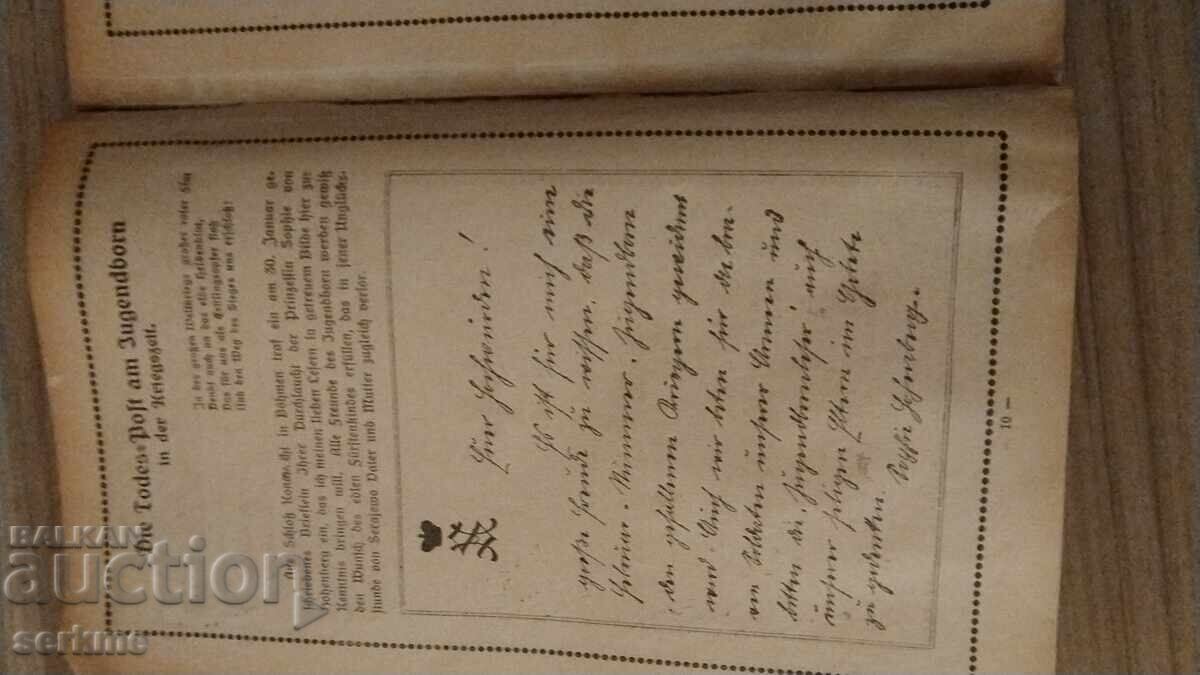 Die Todes-Post am Jugendborn
in der Kriegszeit.
In des großen Weltkriegs großer roter Flut
Denkt auch an das edle Heldenblut,
Das für uns als Erstlingsopfer floß
Und den Weg des Sieges uns erschloß!
Aus Schloß Konopischt in Böhmen traf ein am 30. Januar ge-
schriebenes Brieflein Ihrer Durchlaucht der Prinzessin Sophie von
Hohenberg ein, das ich meinen lieben Lesern in getreuem Bilde hier zur
Kenntnis bringen will. Alle Freunde des Jugendborn werden gewiß
den Wunsch des edlen Fürstenkindes erfüllen, das in jener Unglücks-
stunde von Serajewo Vater und Mutter zugleich verlor.
Euer Hochwürden!
Es ist für mich eine
große Freude zu wissen, daß die
Februar-Nummer Jugendborn
den gefallenen Kriegern gewidmet
wird. Auch wir beten für die bra-
ven Soldaten unserer Armee und
bitten die Jugendbornleser auch
unserer seligen Eltern im Gebete
zu gedenken.
Sophie Hohenberg
10 —
BALKAN
auction
serkme